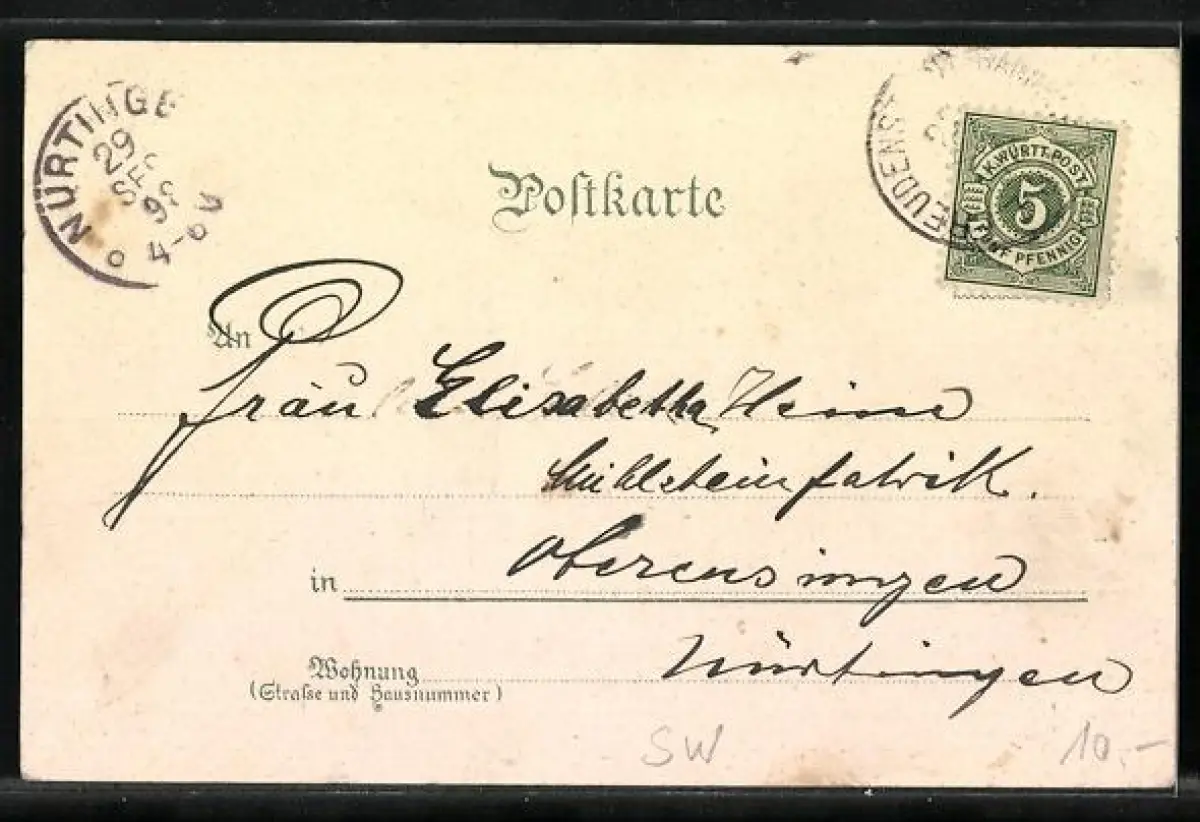 NÜRTINGE
29
SEP
4-6 V
EUDENS
Postkarte
K. WÜRTT. POST
5
FÜNF PFENNIG
An
Frau Elisabetha Heim
Mühlsteinfabrik.
in Oberensingen
Wohnung Nürtingen
(Straße und Hausnummer)
SW
10.-